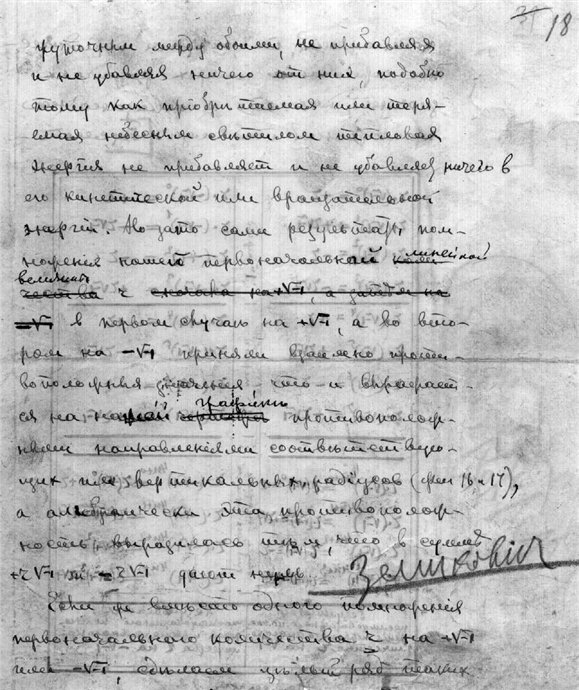 18
жуточным между обоими, не прибавляя
и не убавляя ничего от них, подобно
тому как пріобрѣтаемая или теря-
емая небесным свѣтилом тепловая
энергія не прибавляет и не убавляет ничего в
его кинетической или вращательной
энергіи. Но зато сами результаты пом-
ноженія нашей первоначальной линейной
величины
чества r сначала на +√-1, а затѣм на
-√-1 в первом случаѣ на +√-1, а во вто-
ром на -√-1 приняли взаимно проти-
воположныя значенія что и выражает-
ся на графикѣ противополож-
ными направленіями соотвѣтствую-
щих им вертикальных радіусов (фиг 16 и 17),
а алгебраически эта противополож-
ность выразилась тѣм, что в суммѣ
+r√-1 и -r√-1 дают нуль
Если же вмѣсто одного помноженія
первоначальнаго количества r на +√-1
или -√-1, сдѣлаем цѣлый ряд таких